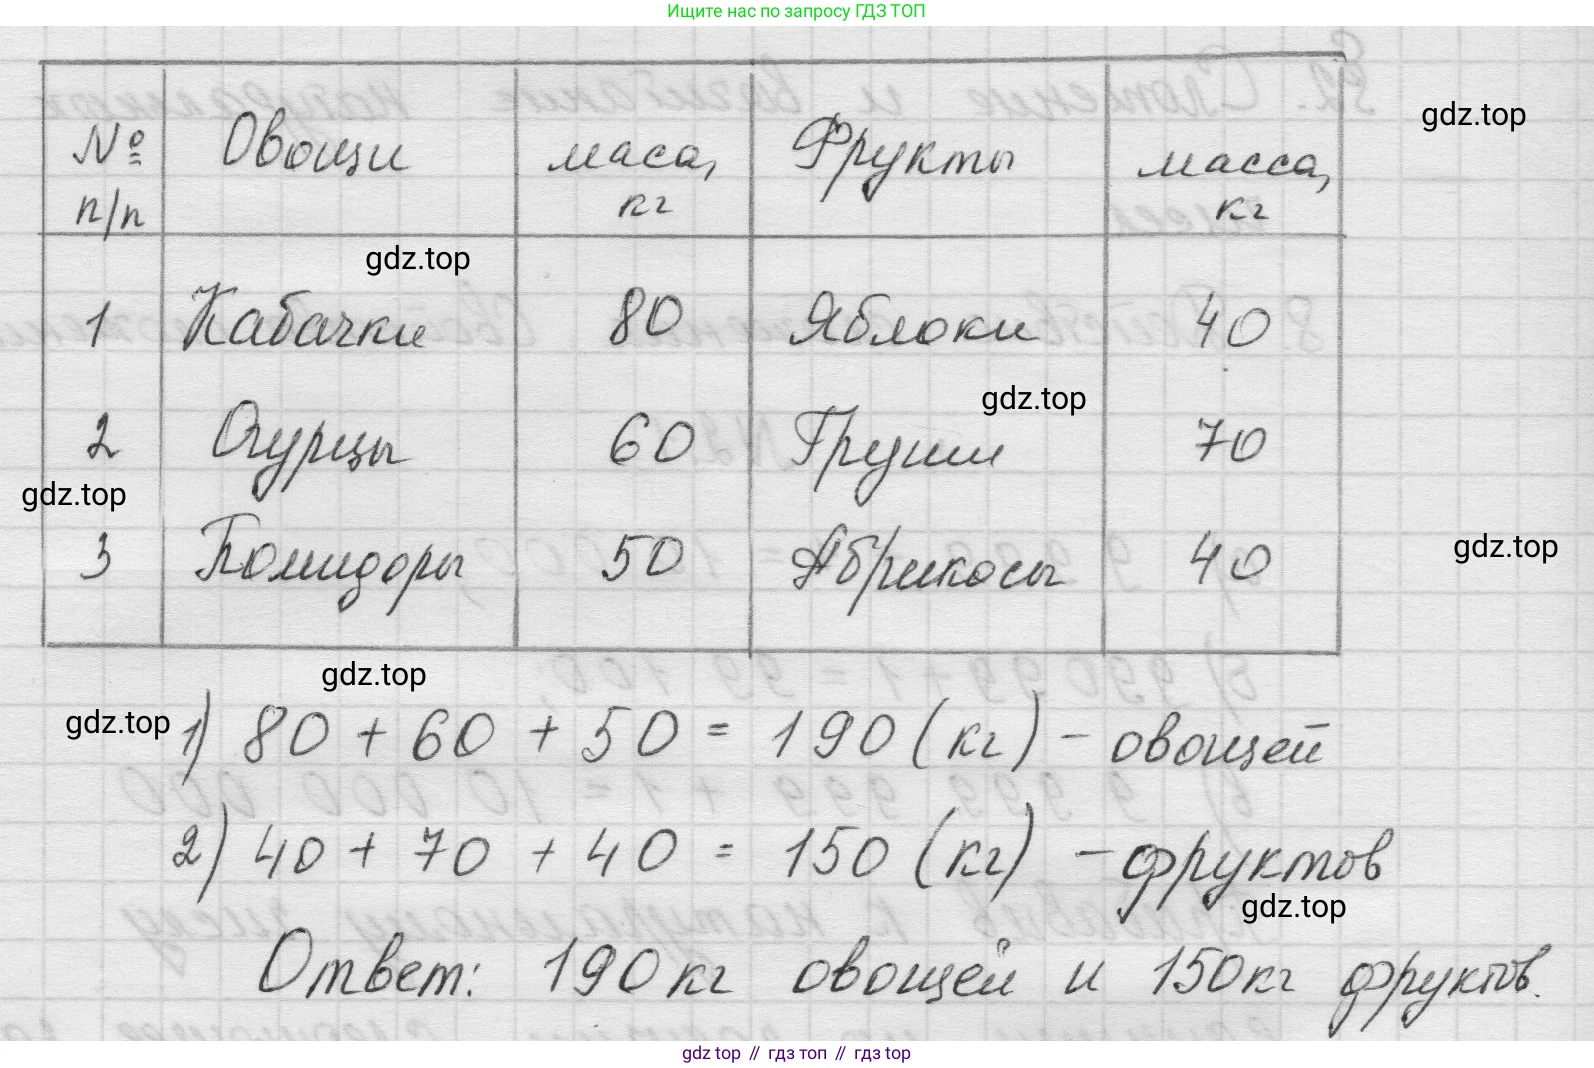 Ищите нас по запросу ГДЗ ТОП
gdz.top
№ п/п Овощи маса, кг Фрукты масса, кг
gdz.top
1 Кабачки 80 Яблоки 40
gdz.top
2 Огурцы 60 Груши 70
gdz.top
3 Помидоры 50 Абрикосы 40
gdz.top
gdz.top
gdz.top
1) 80 + 60 + 50 = 190 (кг) - овощей
2) 40 + 70 + 40 = 150 (кг) - фруктов
gdz.top
Ответ: 190 кг овощей и 150 кг фруктов.
gdz top // гдз топ // гдз top